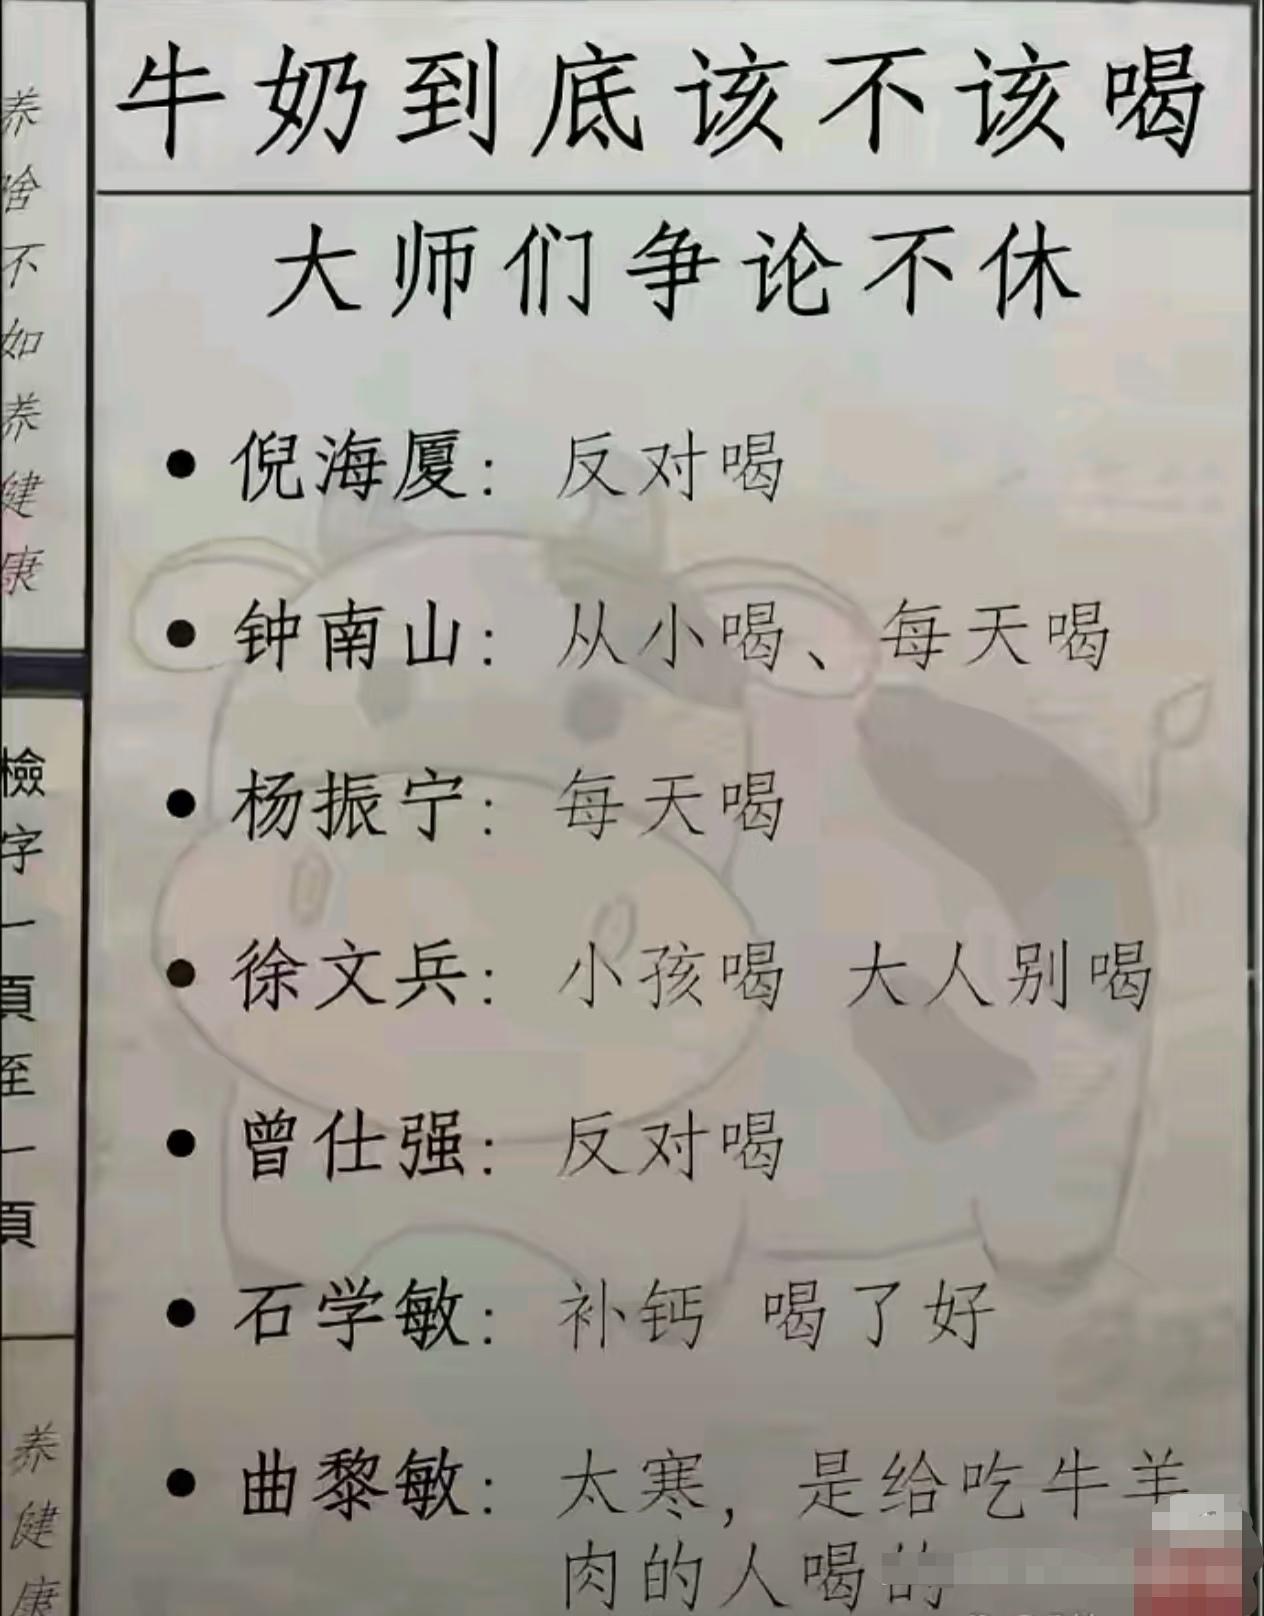 牛奶到底该不该喝
大师们争论不休
倪海厦：反对喝
钟南山：从小喝、每天喝
杨振宁：每天喝
徐文兵：小孩喝 大人别喝
曾仕强：反对喝
石学敏：补钙 喝了好
曲黎敏：太寒，是给吃牛羊
肉的人喝的
养啥不如养健康
檢字一頁至一頁
养健康